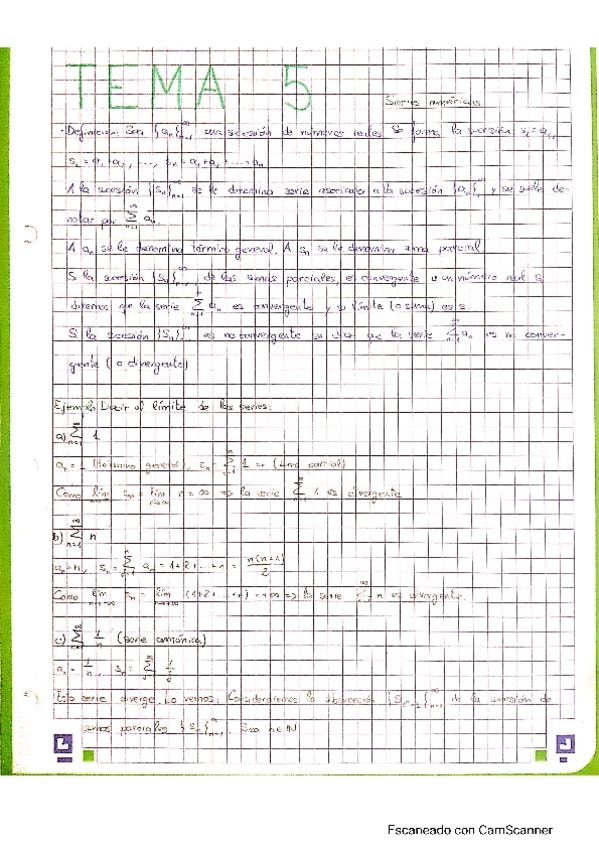 TEMA 5
Series numéricas
·Definición: Sea {aₙ}ₙ₌₁^∞ una sucesión de números reales. Se forma la sucesión s₁ = a₁,
s₂ = a₁+a₂, ..., sₙ = a₁+a₂+...+aₙ
A la sucesión {sₙ}ₙ₌₁^∞ se le denomina serie asociada a la sucesión {aₙ}ₙ₌₁^∞ y se suele de-
notar por ∑ₙ₌₁^∞ aₙ
A aₙ se le denomina término general. A sₙ se le denomina suma parcial
Si la sucesión {sₙ}ₙ₌₁^∞, de las sumas parciales, es convergente a un número real s,
diremos que la serie ∑ₙ₌₁^∞ aₙ es convergente y su límite (o suma) es s.
Si la sucesión {sₙ}ₙ₌₁^∞ es no convergente se dice que la serie ∑ₙ₌₁^∞ aₙ es no conver-
gente (o divergente)
Ejemplo: Decir el límite de las series:
a) ∑ₙ₌₁^∞ 1
aₙ = 1 (término general), sₙ = ∑ 1 = n (suma parcial)
Como lim sₙ = lim n = ∞ ⇒ la serie ∑ 1 es divergente
b) ∑ₙ₌₁^∞ n
aₙ = n, sₙ = ∑ aₙ = 1+2+...+n = n(n+1)/2
Como lim sₙ = lim (1+2+...+n) = +∞ ⇒ la serie ∑ n es divergente.
c) ∑ 1/n (serie armónica)
aₙ = 1/n, sₙ = ∑ 1/j
Esta serie diverge. Lo vemos: Consideremos la subsucesión de la sucesión de
series parciales {sₙ}ₙ₌₁^∞. Sea n∈ℕ
Escaneado con CamScanner